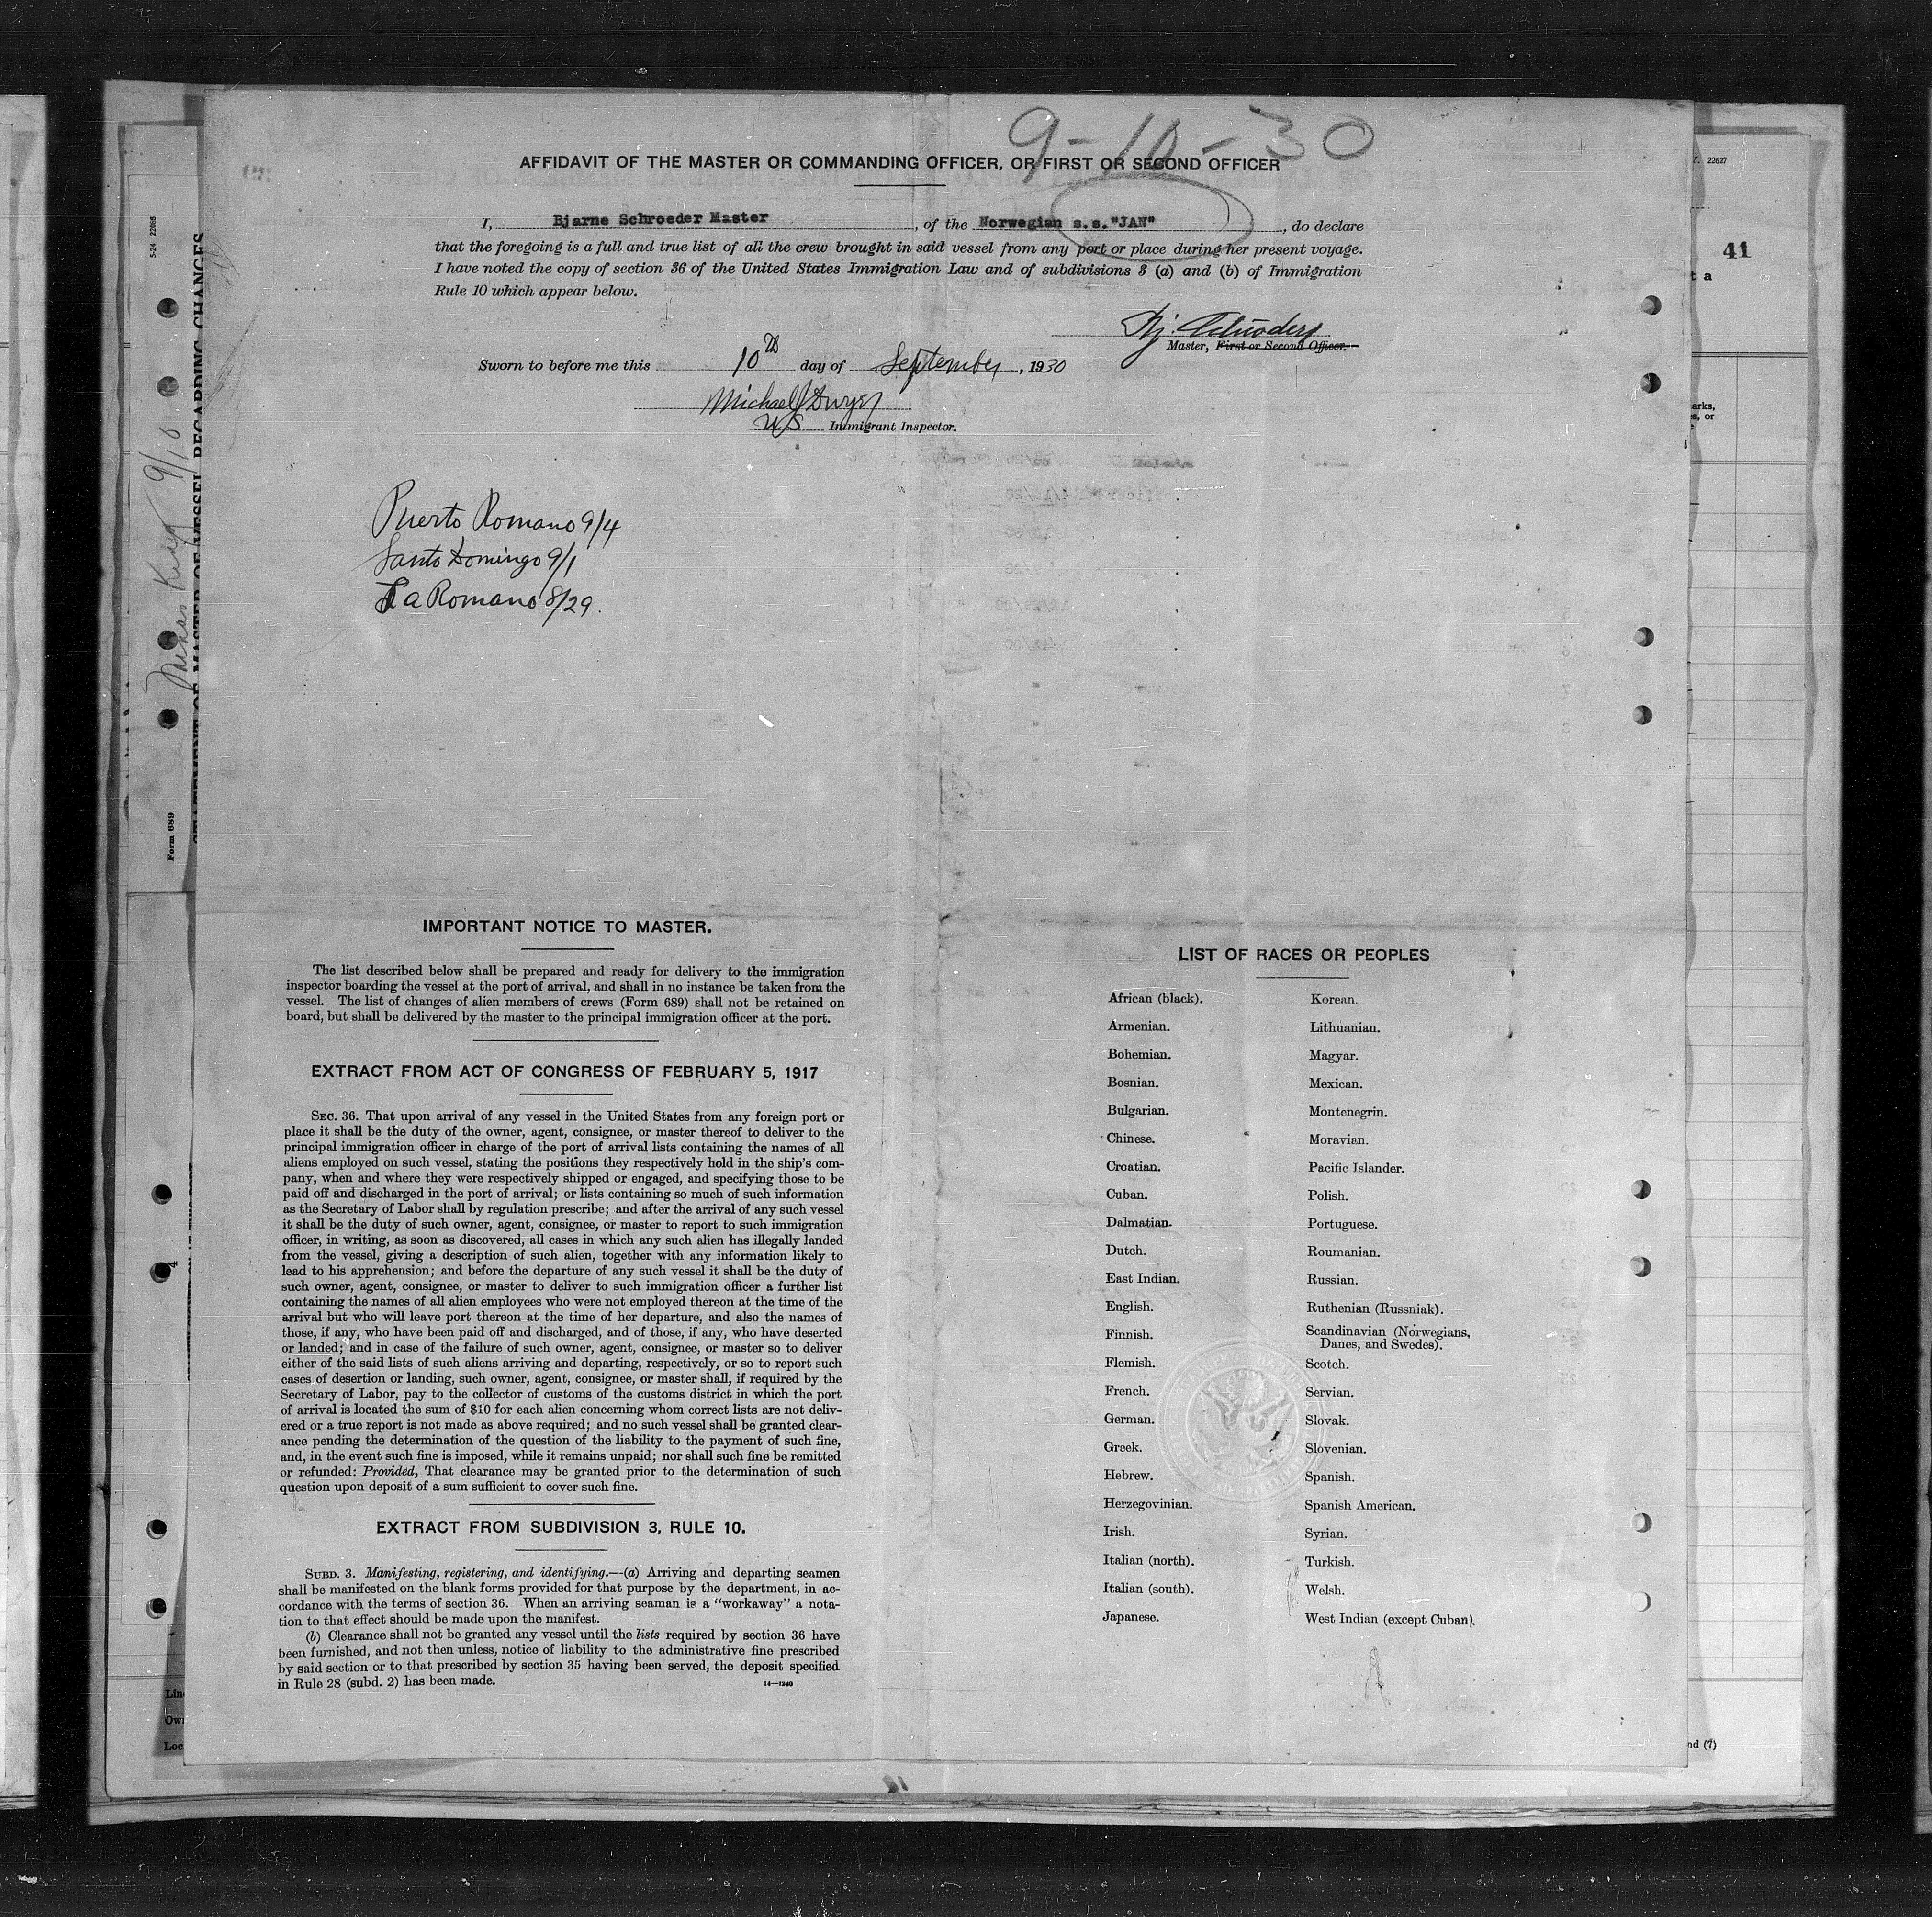 9-10-30
AFFIDAVIT OF THE MASTER OR COMMANDING OFFICER, OR FIRST OR SECOND OFFICER
I, Bjarne Schroeder Master, of the Norwegian s.s."JAN", do declare
that the foregoing is a full and true list of all the crew brought in said vessel from any port or place during her present voyage.
I have noted the copy of section 36 of the United States Immigration Law and of subdivisions 3 (a) and (b) of Immigration
Rule 10 which appear below.
Bj. Schroeder
Master, First or Second Officer.
Sworn to before me this 10th day of September, 1930
Michael J Dwyer
US Immigrant Inspector.
Puerto Romano 9/4
Santo Domingo 9/1
La Romano 8/29.
IMPORTANT NOTICE TO MASTER.
The list described below shall be prepared and ready for delivery to the immigration
inspector boarding the vessel at the port of arrival, and shall in no instance be taken from the
vessel. The list of changes of alien members of crews (Form 689) shall not be retained on
board, but shall be delivered by the master to the principal immigration officer at the port.
EXTRACT FROM ACT OF CONGRESS OF FEBRUARY 5, 1917
SEC. 36. That upon arrival of any vessel in the United States from any foreign port or
place it shall be the duty of the owner, agent, consignee, or master thereof to deliver to the
principal immigration officer in charge of the port of arrival lists containing the names of all
aliens employed on such vessel, stating the positions they respectively hold in the ship's com-
pany, when and where they were respectively shipped or engaged, and specifying those to be
paid off and discharged in the port of arrival; or lists containing so much of such information
as the Secretary of Labor shall by regulation prescribe; and after the arrival of any such vessel
it shall be the duty of such owner, agent, consignee, or master to report to such immigration
officer, in writing, as soon as discovered, all cases in which any such alien has illegally landed
from the vessel, giving a description of such alien, together with any information likely to
lead to his apprehension; and before the departure of any such vessel it shall be the duty of
such owner, agent, consignee, or master to deliver to such immigration officer a further list
containing the names of all alien employees who were not employed thereon at the time of the
arrival but who will leave port thereon at the time of her departure, and also the names of
those, if any, who have been paid off and discharged, and of those, if any, who have deserted
or landed; and in case of the failure of such owner, agent, consignee, or master so to deliver
either of the said lists of such aliens arriving and departing, respectively, or so to report such
cases of desertion or landing, such owner, agent, consignee, or master shall, if required by the
Secretary of Labor, pay to the collector of customs of the customs district in which the port
of arrival is located the sum of $10 for each alien concerning whom correct lists are not deliv-
ered or a true report is not made as above required; and no such vessel shall be granted clear-
ance pending the determination of the question of the liability to the payment of such fine,
and, in the event such fine is imposed, while it remains unpaid; nor shall such fine be remitted
or refunded: Provided, That clearance may be granted prior to the determination of such
question upon deposit of a sum sufficient to cover such fine.
EXTRACT FROM SUBDIVISION 3, RULE 10.
SUBD. 3. Manifesting, registering, and identifying.—(a) Arriving and departing seamen
shall be manifested on the blank forms provided for that purpose by the department, in ac-
cordance with the terms of section 36. When an arriving seaman is a "workaway" a nota-
tion to that effect should be made upon the manifest.
(b) Clearance shall not be granted any vessel until the lists required by section 36 have
been furnished, and not then unless, notice of liability to the administrative fine prescribed
by said section or to that prescribed by section 35 having been served, the deposit specified
in Rule 28 (subd. 2) has been made.
14—1240
LIST OF RACES OR PEOPLES
African (black).
Armenian.
Bohemian.
Bosnian.
Bulgarian.
Chinese.
Croatian.
Cuban.
Dalmatian.
Dutch.
East Indian.
English.
Finnish.
Flemish.
French.
German.
Greek.
Hebrew.
Herzegovinian.
Irish.
Italian (north).
Italian (south).
Japanese.
Korean.
Lithuanian.
Magyar.
Mexican.
Montenegrin.
Moravian.
Pacific Islander.
Polish.
Portuguese.
Roumanian.
Russian.
Ruthenian (Russniak).
Scandinavian (Norwegians,
Danes, and Swedes).
Scotch.
Servian.
Slovak.
Slovenian.
Spanish.
Spanish American.
Syrian.
Turkish.
Welsh.
West Indian (except Cuban).
Form 689
5-24 22068
9/10
22627
41
t a
arks,
or
nd (7)
Loc
4